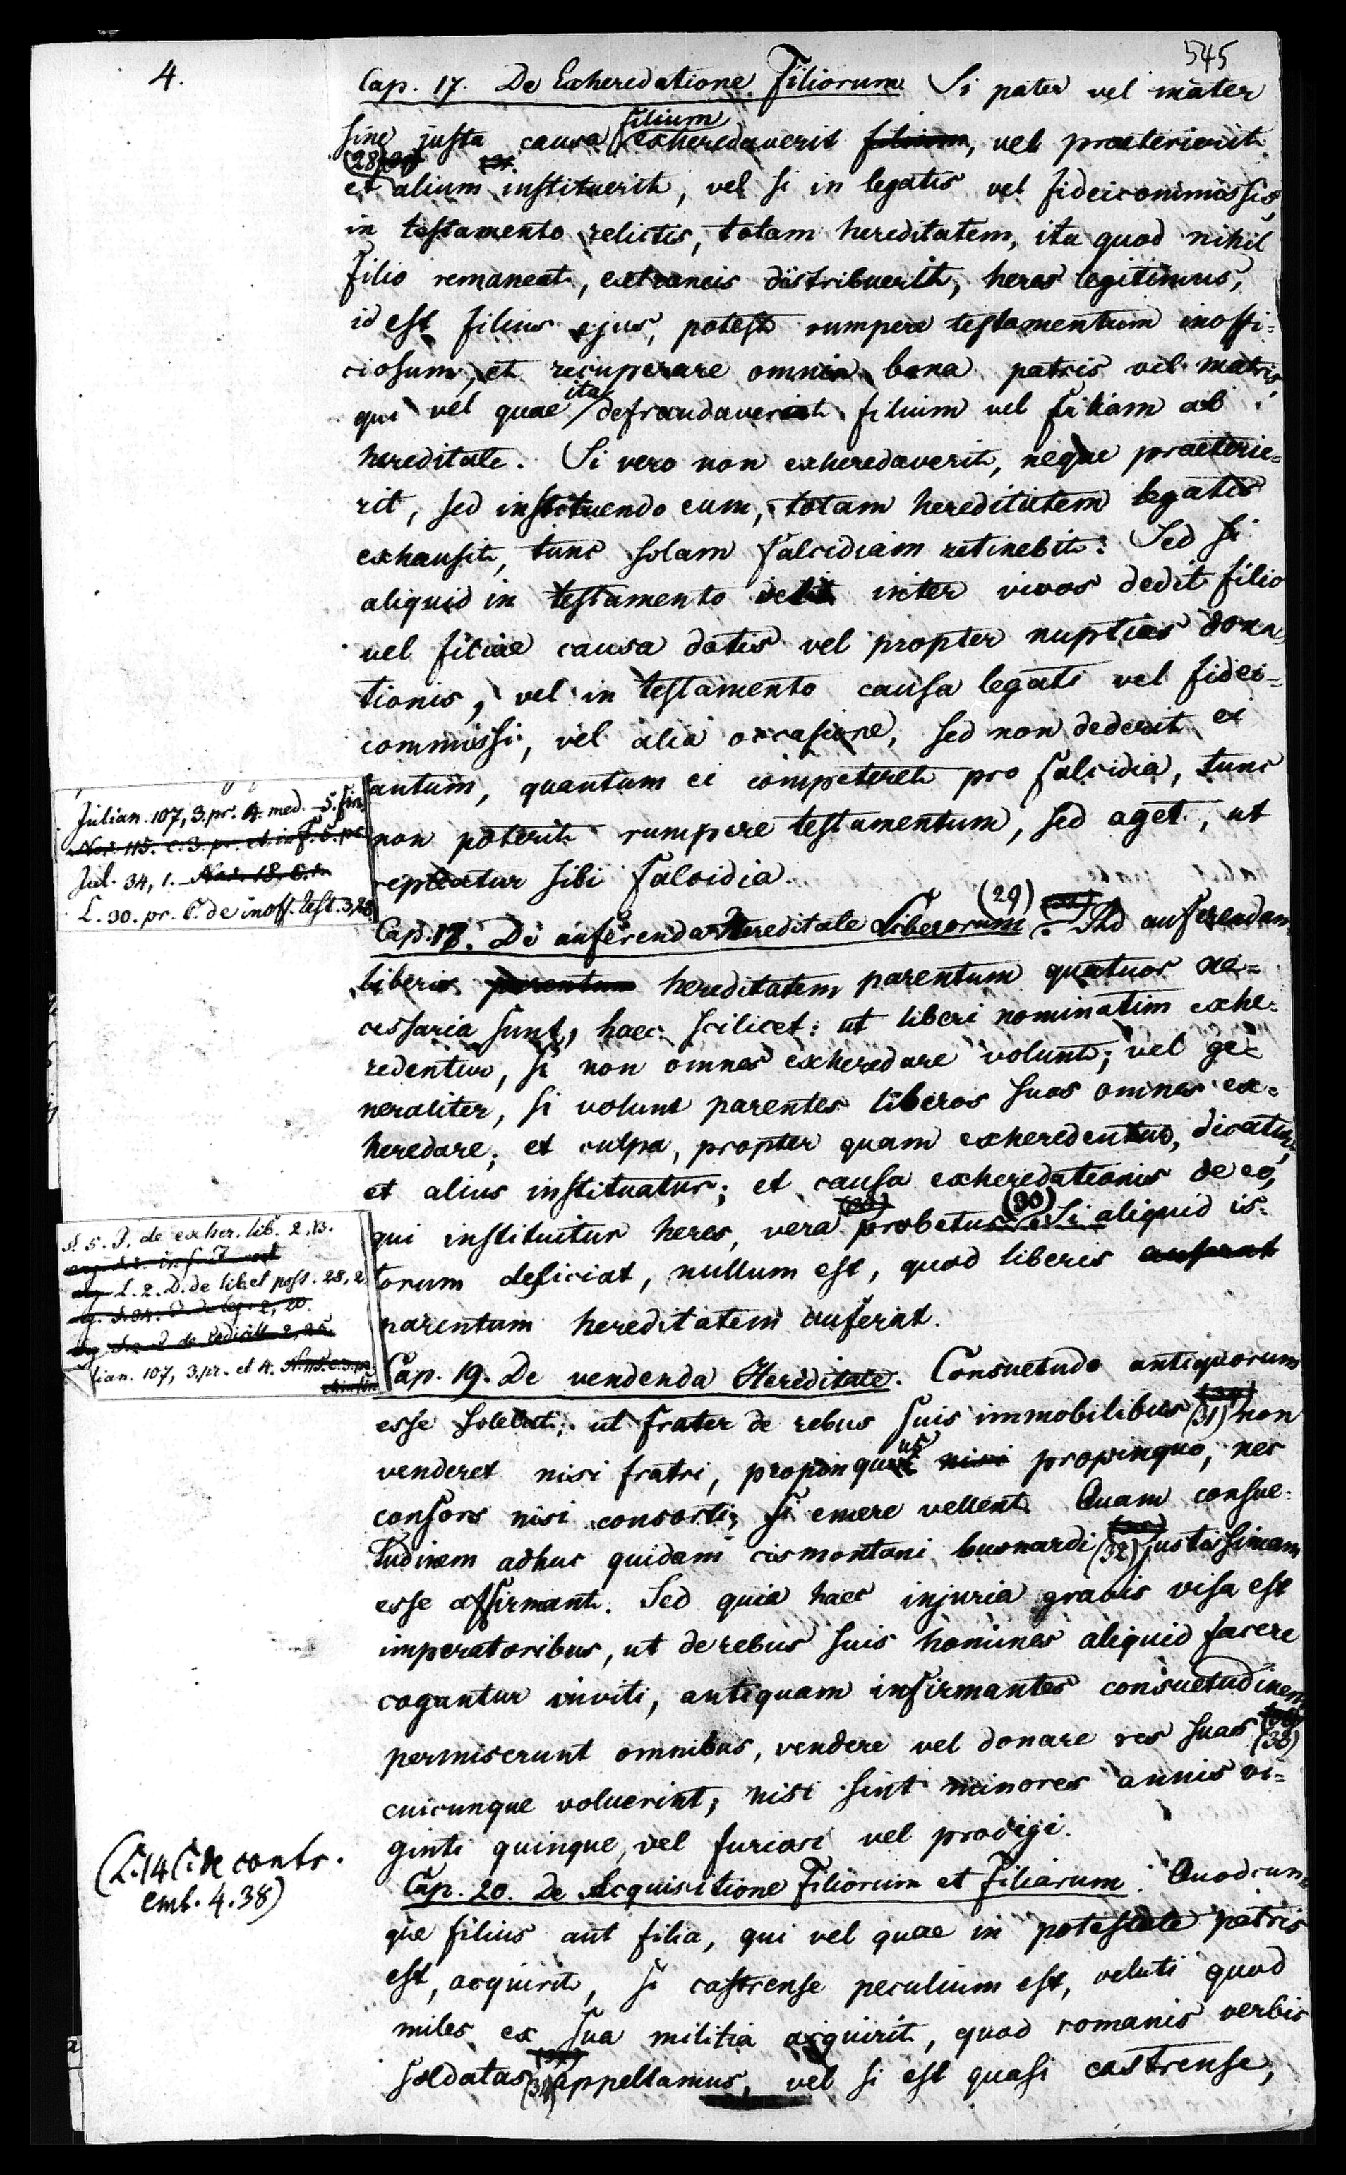 545
4.
Cap. 17. De Exheredatione Filiorum Si pater vel mater
sine justa causa filium exheredaverit filium, vel praeterierit
(28)
et alium instituerit, vel si in legatis vel fideicommissis,
in testamento relictis, totam hereditatem, ita quod nihil
filio remaneat, extraneis distribuerit, heres legitimus,
id est filius ejus, potest rumpere testamentum inoffi-
ciosum, et recuperare omnia bona patris vel matris
qui vel quae ita defraudaverit filium vel filiam ab
hereditate. Si vero non exheredaverit, neque praeterie-
rit, sed instituendo eum, totam hereditatem legatis
exhausit, tunc solam Falcidiam retinebit: Sed si
aliquid in testamento inter vivos dedit filio
vel filiae causa dotis vel propter nuptias dona-
tionis, vel in testamento causa legati vel fidei-
commissi, vel alia occasione, sed non dederit ei
tantum, quantum ei competeret pro Falcidia, tunc
non poterit rumpere testamentum, sed aget, ut
repleatur sibi Falcidia.
Julian. 107, 3. pr. 4. med. 5. fin
Nov. 115. c. 3. pr. et inf. 5. pr.
Jul. 34, 1. Nov. 18. c. 1.
L. 30. pr. C. de inoff. test. 3, 28
Cap. 18. De auferenda Hereditate Liberorum (29) Ad auferendam
liberis parentum hereditatem parentum quatuor ne-
cessaria sunt, haec scilicet: ut liberi nominatim exhe-
redentur, si non omnes exheredare volunt; vel ge-
neraliter, si volunt parentes liberos suos omnes ex-
heredare; et culpa, propter quam exheredentur, dicatur,
et alius instituatur; et causa exheredationis de eo,
qui instituitur heres, vera probetur. (30) Si aliquid is-
torum deficiat, nullum est, quod liberis auferat
parentum hereditatem auferat.
§. 5. J. de exher. lib. 2, 13.
L. 2. D. de lib. et post. 28, 2
lian. 107, 3. pr. et 4.
Cap. 19. De vendenda Hereditate. Consuetudo antiquorum
esse solebat, ut frater de rebus suis immobilibus (31) non
venderet nisi fratri, propinquus nisi propinquo, nec
consors nisi consorti, si emere vellent. Quam consue-
tudinem adhuc quidam cismontani busnardi (32) justissimam
esse affirmant. Sed quia haec injuria gravis visa est
imperatoribus, ut de rebus suis homines aliquid facere
cogantur inviti, antiquam infirmantes consuetudinem
permiserunt omnibus, vendere vel donare res suas (33)
cuicunque voluerint, nisi sint minores annis vi-
ginti quinque, vel furiosi vel prodigi.
(L. 14 C. de contr.
emt. 4. 38)
Cap. 20. De Acquisitione Filiorum et Filiarum. Quodcun-
que filius aut filia, qui vel quae in potestate patris
est, acquirit, si castrense peculium est, veluti quod
miles ex sua militia acquirit, quod romanis verbis
soldatas (34) appellamus, vel si est quasi castrense,